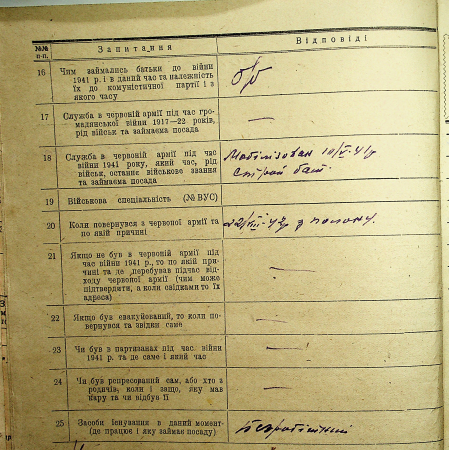 №№ п.п.
Запитання
Відповіді
16
Чим займались батьки до війни
1941 р. і в даний час та належність
їх до комуністичної партії і з
якого часу
б/п
17
Служба в червоній армії під час гро-
мадянської війни 1917—22 років,
рід військ та займаєма посада
—
18
Служба в червоній армії під час
війни 1941 року, який час, рід
військ, останнє військове звання
та займаєма посада
Мобілізован 10/V-41 р
Строй бат.
19
Військова спеціяльність (№ ВУС)
20
Коли повернувся з червоної армії та
по якій причині
22/VIII-42 р з полону.
21
Якщо не був в червоній армії
під час війни 1941 р., то по якій при-
чині та де перебував підчас від-
ходу червоної армії (чим може
підтвердити, а коли свідками то їх
адреса)
—
22
Якщо був евакуйований, то коли по-
вернувся та звідки саме
—
23
Чи був в партизанах під час війни
1941 р. та де саме і який час
—
24
Чи був репресований сам, або хто з
родичів, коли і защо, яку мав
кару та чи відбув її
—
25
Засоби існування в даний момент
(де працює і яку займає посаду)
Безробітний